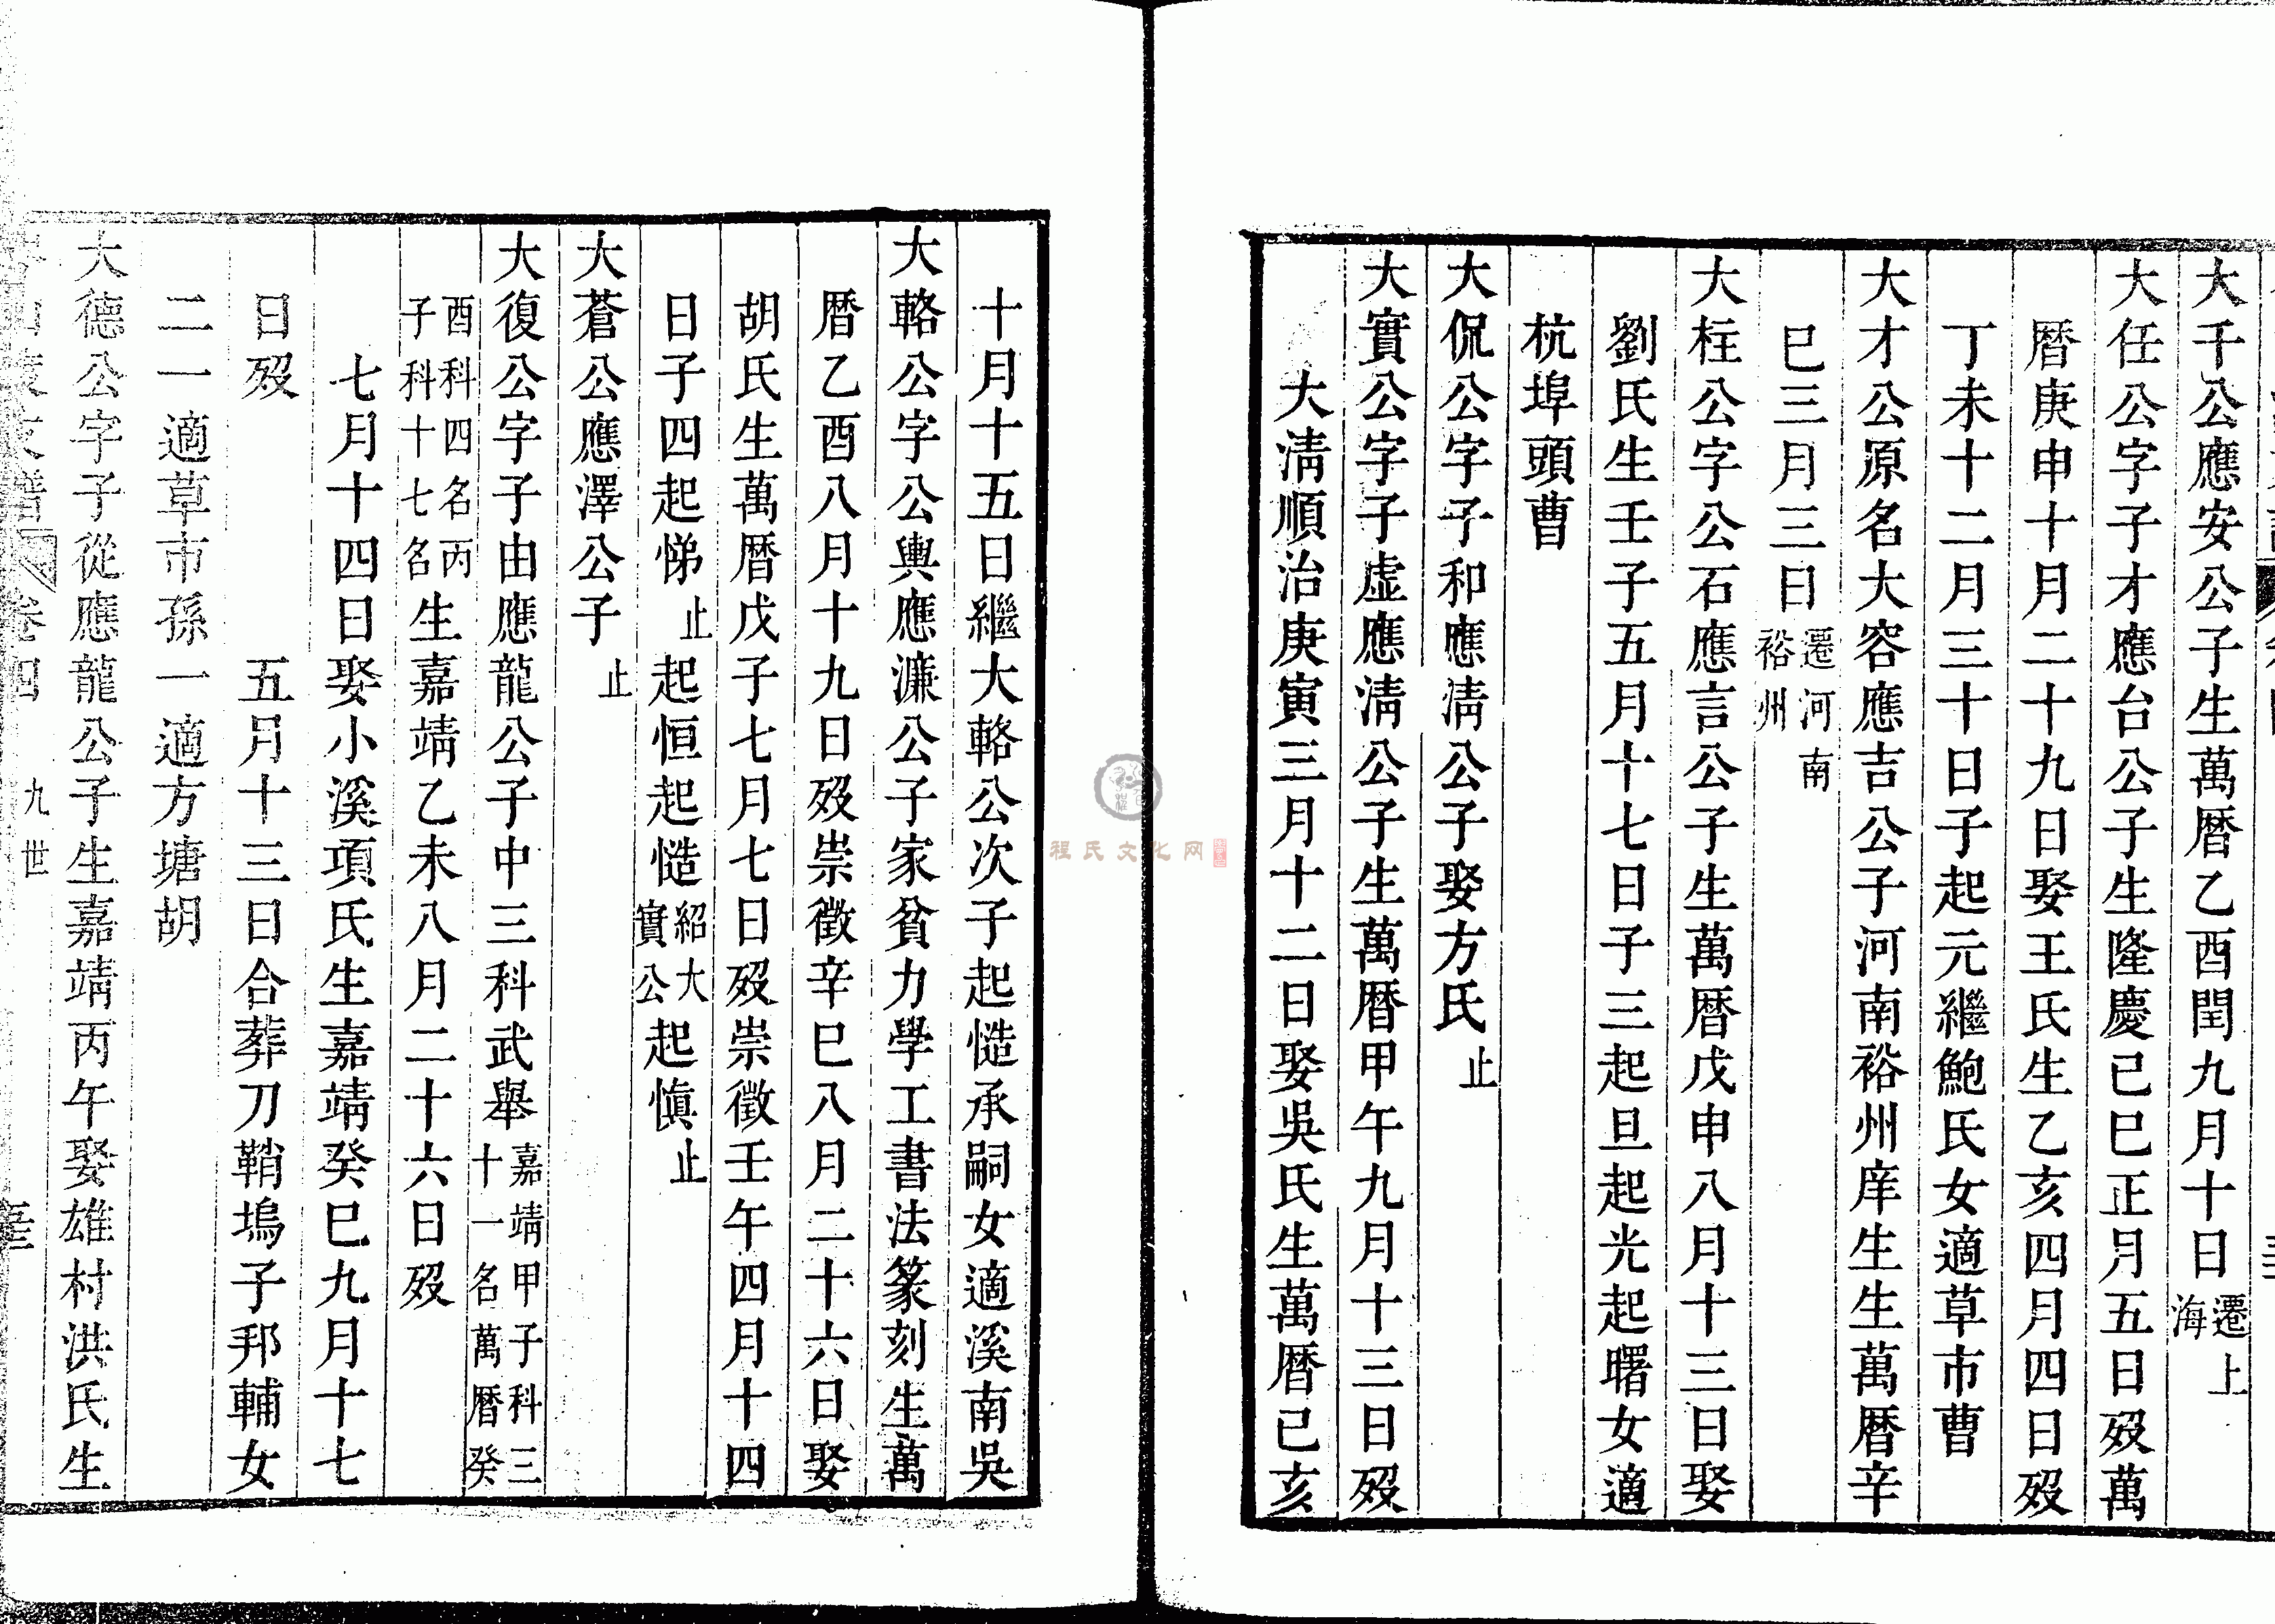 大千公應安公子生萬曆乙酉閏九月十日遷上海
大任公字子才應台公子生隆慶己巳正月五日歿萬
曆庚申十月二十九日娶王氏生乙亥四月四日歿
丁未十二月三十日子起元繼鮑氏女適草市曹
大才公原名大容應吉公子河南裕州庠生生萬曆辛
巳三月三日遷河南裕州
大柱公字公石應言公子生萬曆戊申八月十三日娶
劉氏生壬子五月十七日子三起旦起光起曙女適
杭埠頭曹
大侃公字子和應淸公子娶方氏止
大實公字子虛應淸公子生萬曆甲午九月十三日歿
大淸順治庚寅三月十二日娶吳氏生萬曆己亥
十月十五日繼大輅公次子起慥承嗣女適溪南吳
大輅公字公輿應濂公子家貧力學工書法篆刻生萬
曆乙酉八月十九日歿崇徵辛巳八月二十六日娶
胡氏生萬曆戊子七月七日歿崇徵壬午四月十四
日子四起悌止起恒起慥紹大實公起愼止
大蒼公應澤公子止
大復公字子由應龍公子中三科武舉嘉靖甲子科三十一名萬曆癸
酉科四名丙子科十七名生嘉靖乙未八月二十六日歿
七月十四日娶小溪項氏生嘉靖癸巳九月十七
日歿　五月十三日合葬刀鞘塢子邦輔女
二一適草市孫一適方塘胡
大德公字子從應龍公子生嘉靖丙午娶雄村洪氏生
支譜 卷四 九世
程氏文化网